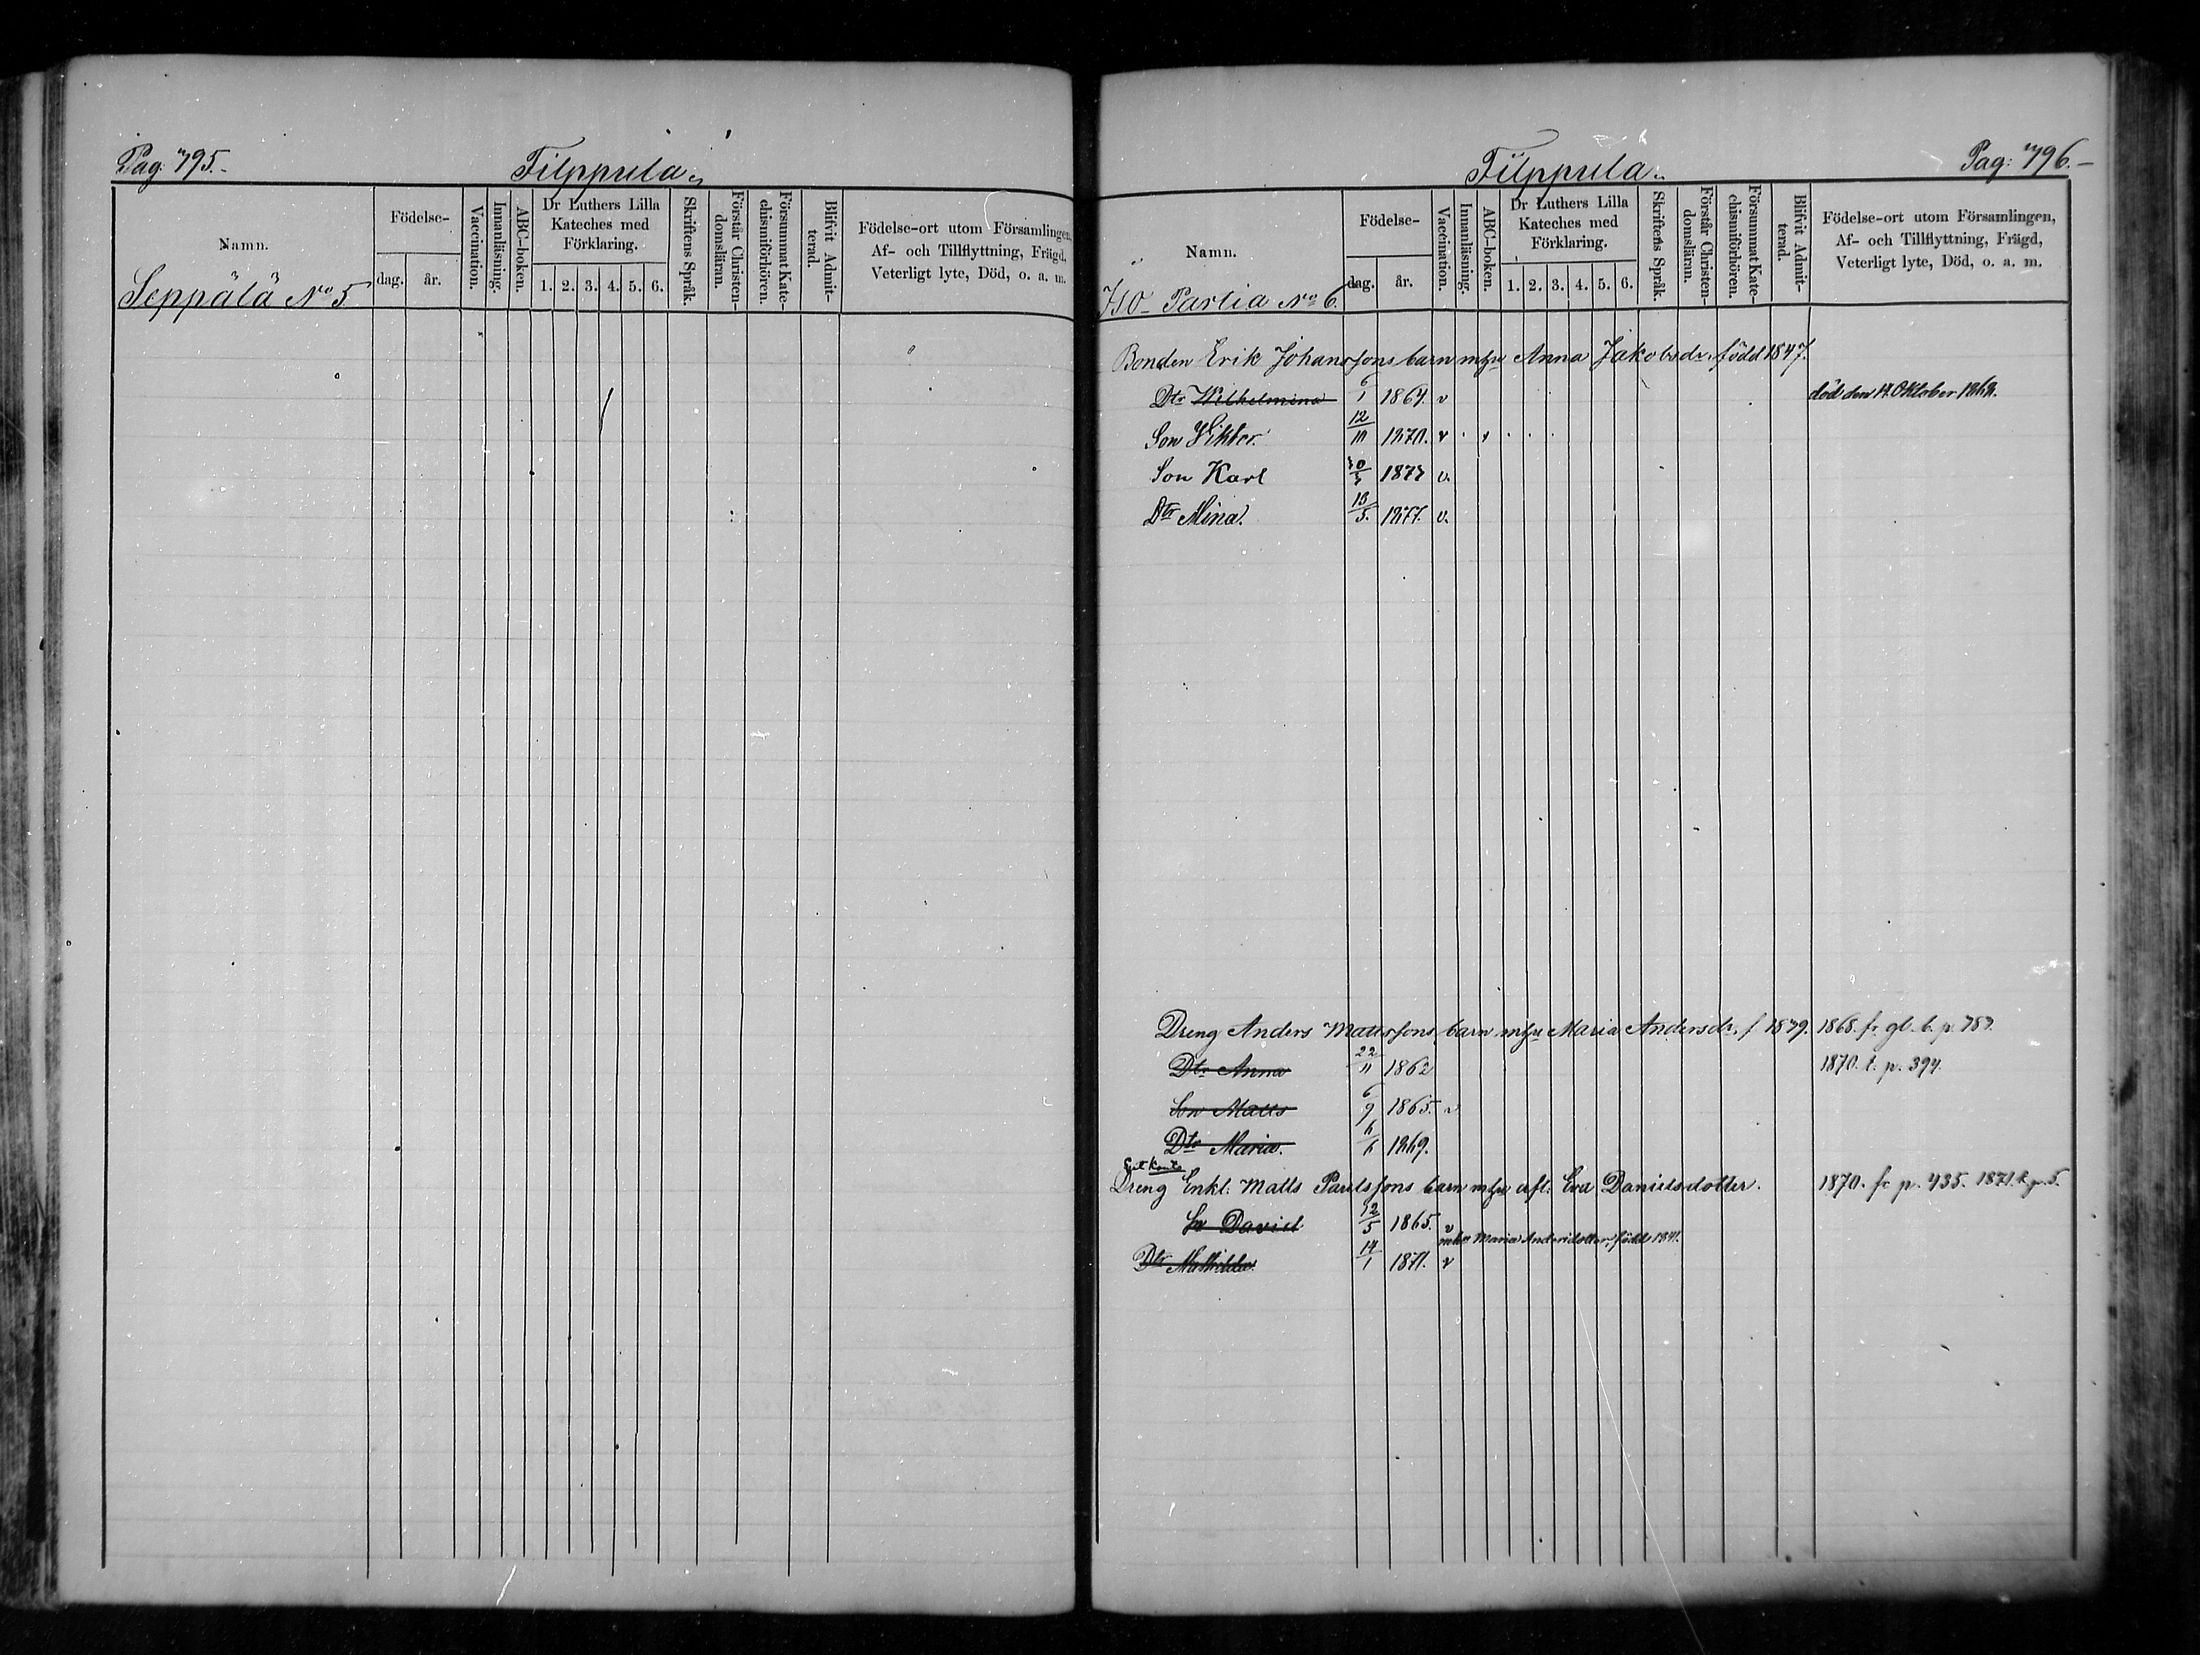 Pag: 795.
Filppula.
Namn.
Födelse-
dag. år.
Vaccination.
Innanläsning.
ABC-boken.
Dr Luthers Lilla
Kateches med
Förklaring.
1. 2. 3. 4. 5. 6.
Skriftens Språk.
Förstår Christen-
domsläran.
Försummat Kate-
chismiförhören.
Blifvit Admit-
terad.
Födelse-ort utom Församlingen,
Af- och Tillflyttning, Frägd,
Veterligt lyte, Död, o. a. m.
Seppälä No 5
Filppula.
Pag: 796.
Namn.
Födelse-
dag. år.
Vaccination.
Innanläsning.
ABC-boken.
Dr Luthers Lilla
Kateches med
Förklaring.
1. 2. 3. 4. 5. 6.
Skriftens Språk.
Förstår Christen-
domsläran.
Försummat Kate-
chismiförhören.
Blifvit Admit-
terad.
Födelse-ort utom Församlingen,
Af- och Tillflyttning, Frägd,
Veterligt lyte, Död, o. a. m.
Iso Partia No 6.
Bonden Erik Johanssons barn m hu Anna Jakobsdr. född 1847.
Dtr Wilhelmina 6/1 1867. v död den 17 Oktober
Son Viktor. 12/10 1870. v
Son Karl 1873 v.
Dtr Mina. 13/5. 1877. v.
Dreng Anders Mattssons barn m hu Maria Andersdr. f 1839. 1868. fr gl. b. p. 787.
Dtr Anna 22/11 1862 1870. t. p. 394.
Son Matts 6/9 1865. v
Dtr Maria. 6/6 1869.
Dreng Enkl. Matts Paulssons barn m hu afl. Eva Danielsdotter. 1870. fr p. 435. 1871. t. p. 5.
Sn David 12/5 1865. v
m hu Maria Andersdotter, född 1841.
Dtr Mathilda. 14/1 1871. v